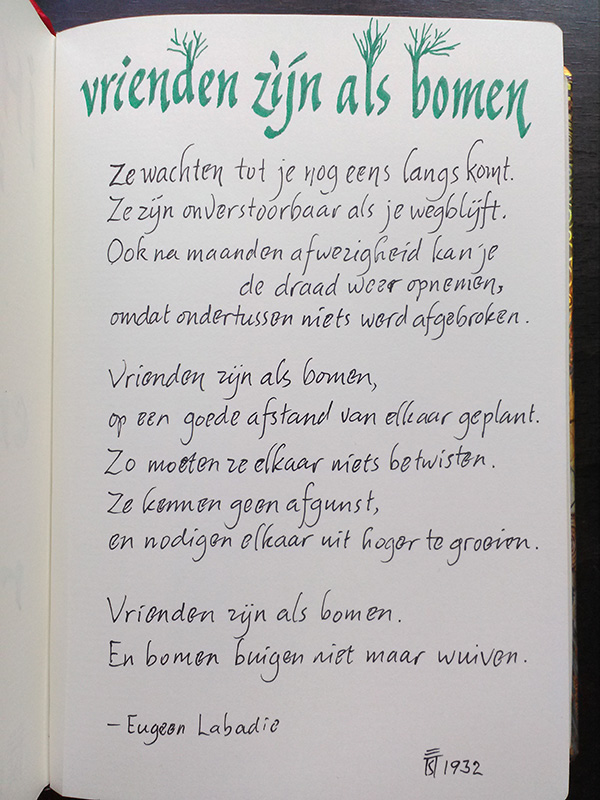 vrienden zijn als bomen
Ze wachten tot je nog eens langs komt.
Ze zijn onverstoorbaar als je wegblijft.
Ook na maanden afwezigheid kan je
de draad weer opnemen,
omdat ondertussen niets werd afgebroken.
Vrienden zijn als bomen,
op een goede afstand van elkaar geplant.
Zo moeten ze elkaar niets betwisten.
Ze kennen geen afgunst,
en nodigen elkaar uit hoger te groeien.
Vrienden zijn als bomen.
En bomen buigen niet maar wuiven.
- Eugeen Labadie
1932